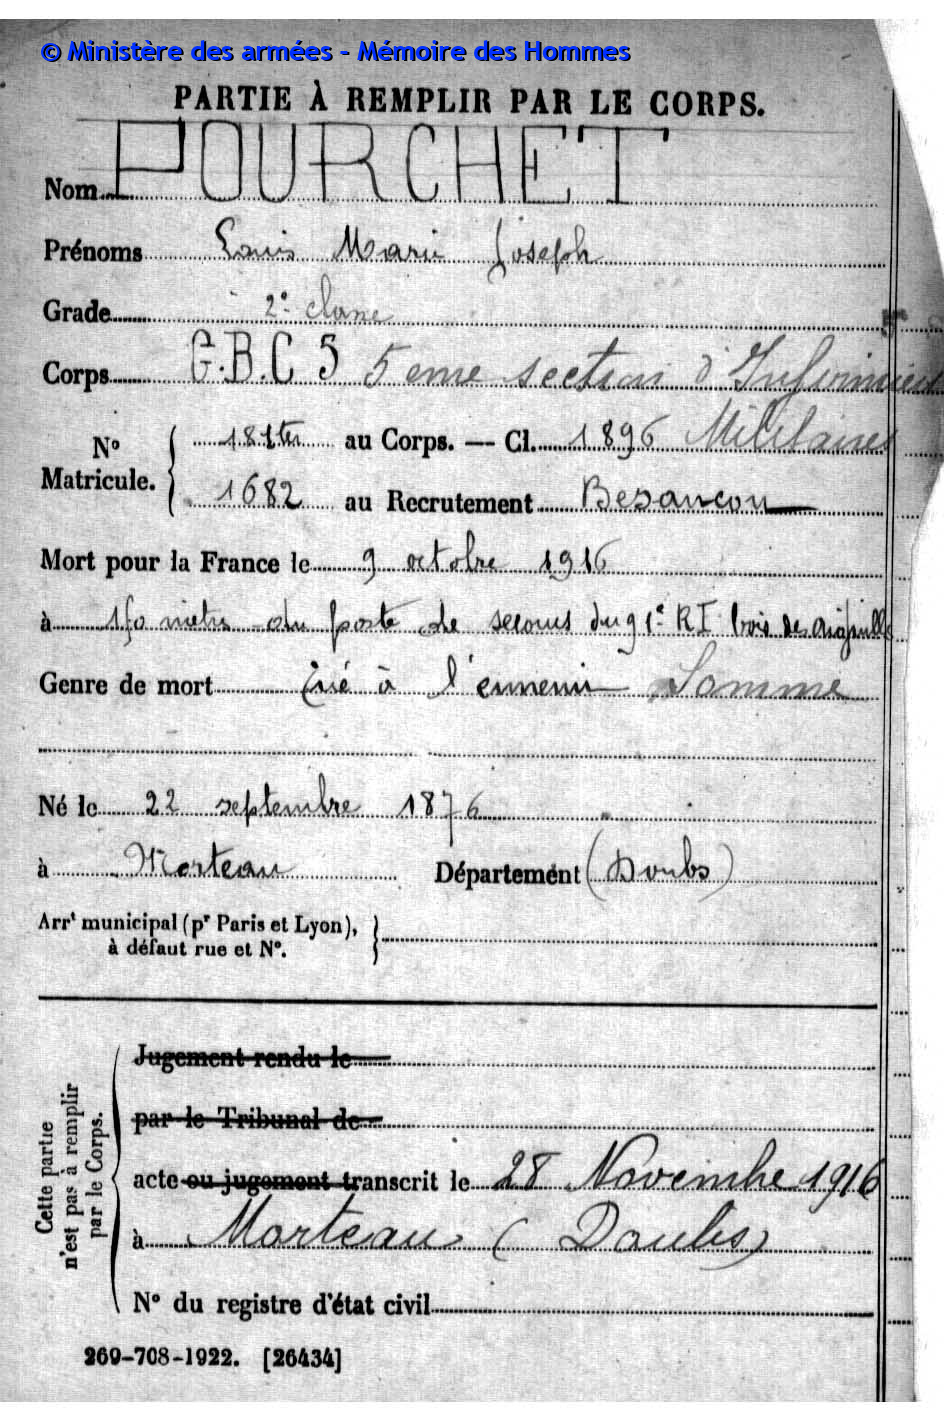 © Ministère des armées - Mémoire des Hommes
PARTIE À REMPLIR PAR LE CORPS.
Nom POURCHET
Prénoms Louis Marie Joseph
Grade 2e classe
Corps G.B.C 5 5eme section d'Infirmiers
N° Matricule. 181ter au Corps. — Cl. 1896 Militaires
1682 au Recrutement Besançon
Mort pour la France le 9 octobre 1916
à 150 mètres du poste de secours du 91e RI bois des
Genre de mort Tué à l'ennemi Somme
Né le 22 septembre 1876
à Morteau Département (Doubs)
Arrt municipal (pr Paris et Lyon),
à défaut rue et N°.
Cette partie
n'est pas à remplir
par le Corps.
Jugement rendu le
par le Tribunal de
acte ou jugement transcrit le 28 Novembre 1916
à Morteau (Doubs)
N° du registre d'état civil
269-708-1922. [26434]